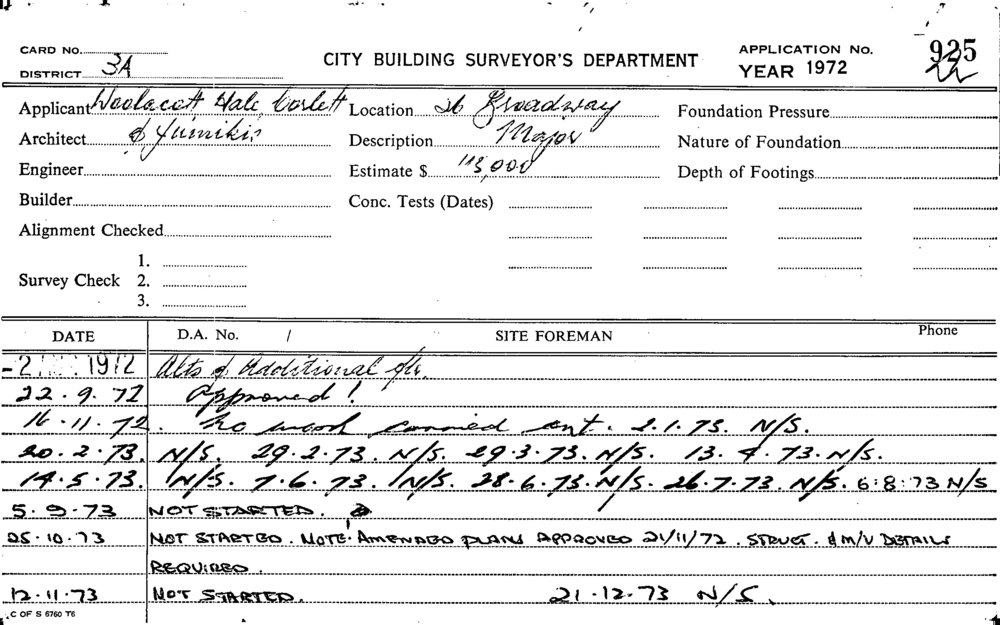 CARD NO.
DISTRICT 3A
CITY BUILDING SURVEYOR'S DEPARTMENT
APPLICATION No. 925
YEAR 1972
Applicant Woolacott Hale Corlett Location 26 Broadway Foundation Pressure
Architect & Jumikis Description Major Nature of Foundation
Engineer Estimate $ 113,000 Depth of Footings
Builder Conc. Tests (Dates)
Alignment Checked
1.
Survey Check 2.
3.
DATE D.A. No. / SITE FOREMAN Phone
-2 1972 Alts & Additional
22.9.72 Approved!
16.11.72. No work carried out. 2.1.73. N/S.
20.2.73. N/S. 29.2.73. N/S. 29.3.73. N/S. 13.4.73. N/S.
14.5.73. N/S. 7.6.73. N/S. 28.6.73. N/S. 26.7.73. N/S. 6:8:73 N/S
5.9.73 NOT STARTED.
25.10.73 NOT STARTED. NOTE: AMENDED PLANS APPROVED 21/11/72. STRUCT. & M/V DETAILS
REQUIRED.
12.11.73 NOT STARTED. 21.12.73 N/S.
C OF S 6760 T6